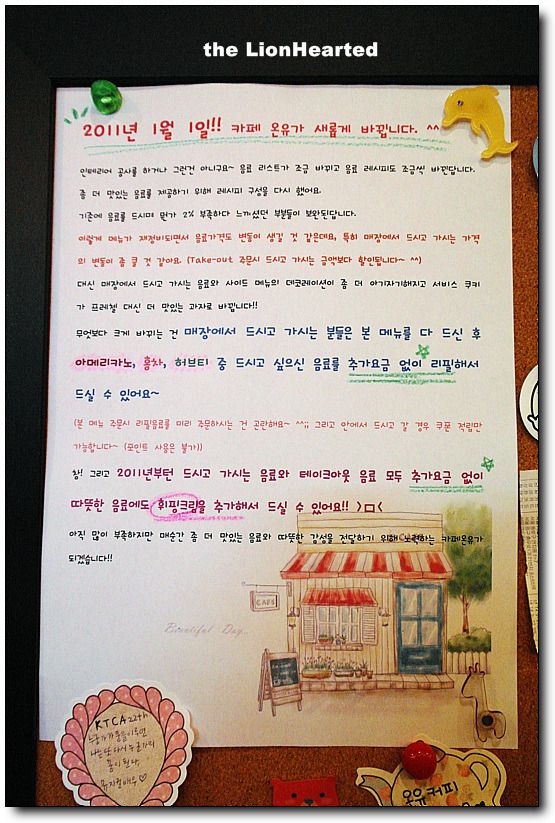 the LionHearted
2011년 1월 1일!! 카페 온유가 새롭게 바뀝니다. ^^
인테리어 공사를 하거나 그런건 아니구요~ 음료 리스트가 조금 바뀌고 음료 레시피도 조금씩 바뀐답니다.
좀 더 맛있는 음료를 제공하기 위해 레시피 구성을 다시 했어요.
기존에 음료를 드시며 뭔가 2% 부족하다 느끼셨던 부분들이 보완된답니다.
이렇게 메뉴가 재정비되면서 음료가격도 변동이 생길 것 같은데요, 특히 매장에서 드시고 가시는 가격
의 변동이 좀 클 것 같아요. (Take-out 주문시 드시고 가시는 금액보다 할인됩니다~ ^^)
대신 매장에서 드시고 가시는 음료와 사이드 메뉴의 데코레이션이 좀 더 아기자기해지고 서비스 쿠키
가 프레첼 대신 더 맛있는 과자로 바뀝니다!!
무엇보다 크게 바뀌는 건 매장에서 드시고 가시는 분들은 본 메뉴를 다 드신 후
아메리카노, 홍차, 허브티 중 드시고 싶으신 음료를 추가요금 없이 리필해서
드실 수 있어요~
(본 메뉴 주문시 리필음료를 미리 주문하시는 건 곤란해요~ ^^;; 그리고 안에서 드시고 갈 경우 쿠폰 적립만
가능합니다~ (포인트 사용은 불가))
참! 그리고 2011년부턴 드시고 가시는 음료와 테이크아웃 음료 모두 추가요금 없이
따뜻한 음료에도 휘핑크림을 추가해서 드실 수 있어요!! >ㅁ<
아직 많이 부족하지만 매순간 좀 더 맛있는 음료와 따뜻한 감성을 전달하기 위해 노력하는 카페온유가
되겠습니다!!
CAFE
Beautiful Day..
KTCA 22th
누군가가 꿈을 이루면
나는 또 다시 누군가의
꿈이 된다
뮤지컬배우♡
온유커피